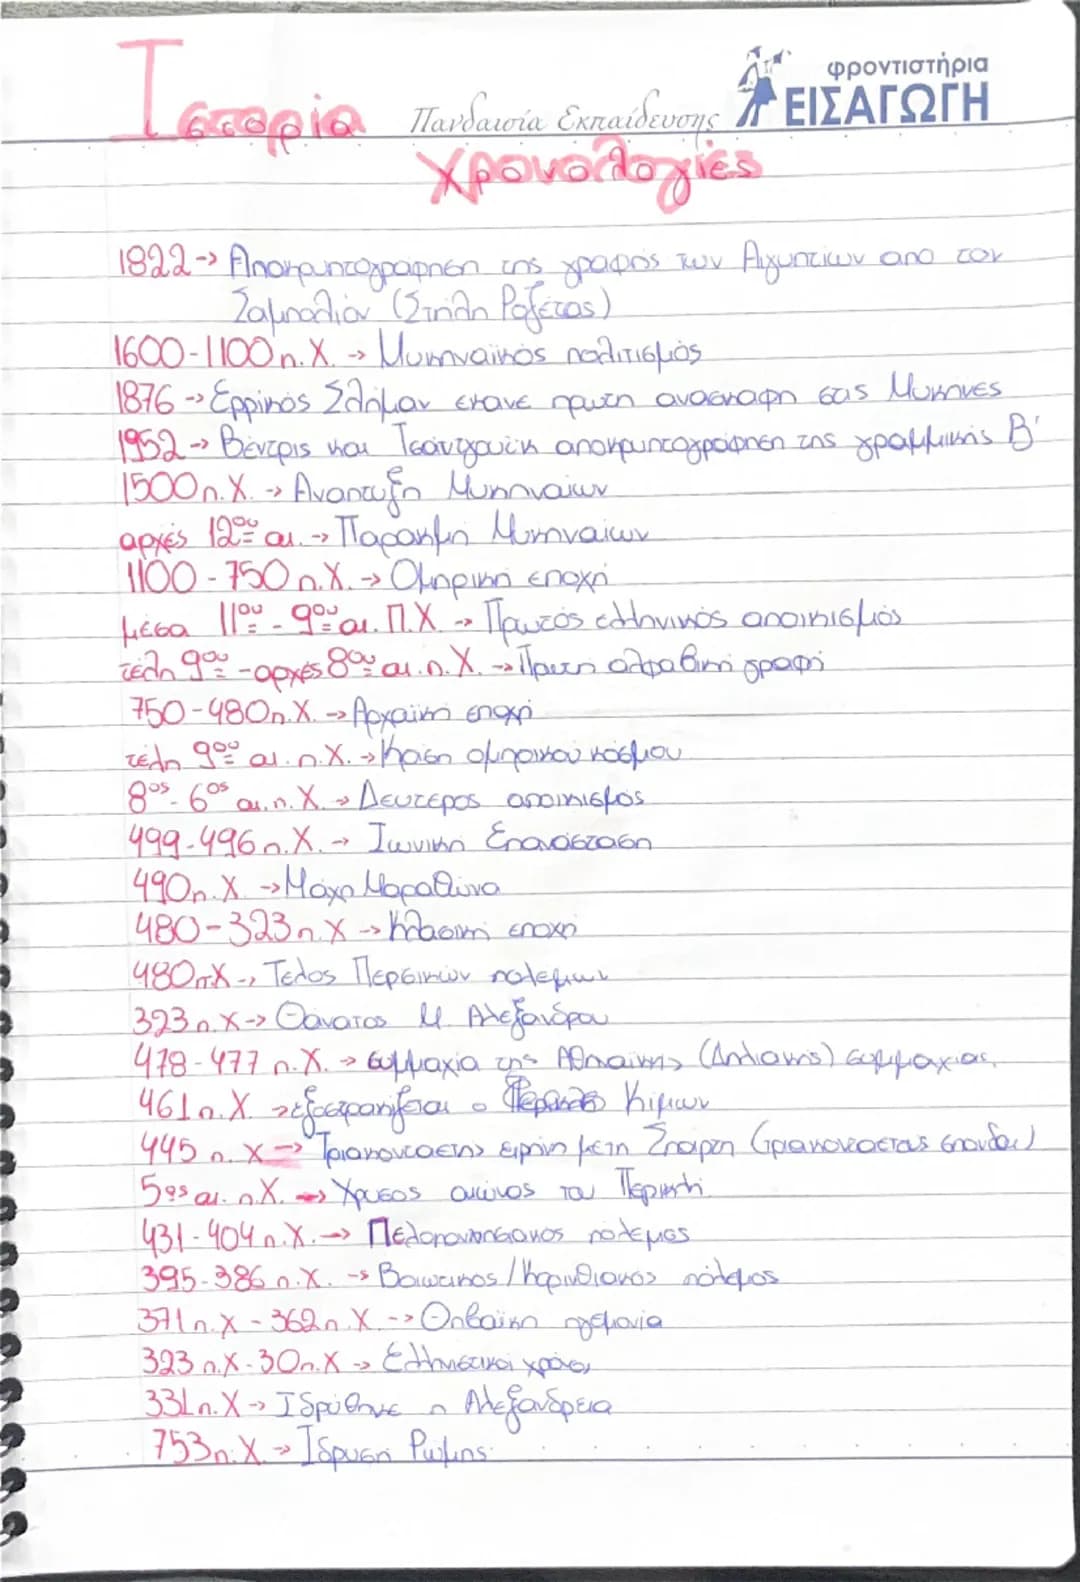 Ιστορία
Πανδαισία Εκπαίδευσης
φροντιστήρια
ΕΙΣΑΓΩΓΗ
Χρονολογίες
1822-> Αποκρυπτογράφηση της γραφής των Αιγυπτίων απο τον
Σαμπολιόν (Στήλη Ροζέτας)
1600-1100 π.Χ. -> Μυκηναϊκός πολιτισμός
1876 -> Ερρίκος Σλήμαν εκανε πρωτη ανασκαφη στις Μυκηνες
1952 -> Βέντρις και Τσάντγουικ αποκρυπτογράφηση της γραμμικής Β'
1500 π.Χ. -> Αναπτυξη Μυκηναίων
αρχές 12ου αι. -> Παρακμη Μυκηναίων
1100-750 π.Χ. -> Ομηρικη εποχή
μέσα 11ου - 9ου αι. Π.Χ -> Πρωτός ελληνικός αποικισμός
τέλη 9ου - αρχές 8ου αι. π.Χ. -> Πρωτη αλφαβική γραφή
750-480 π.Χ. -> Αρχαϊκή εποχή
τέλη 9ου αι. π.Χ. -> Κριση ομηρικού κόσμου
8ος - 6ος αι. π.Χ. -> Δευτερος αποικισμός
499-496 π.Χ. -> Ιωνικη Επανάσταση
490 π.Χ. -> Μάχη Μαραθώνα
480-323 π.Χ -> Κλασικη εποχη
480 π.Χ -> Τελος Περσικών πολεμων
323 π.Χ -> Θάνατος Μ. Αλεξάνδρου
478-477 π.Χ. -> συμμαχία της Αθηναϊκης (Δηλιακης) συμμαχιας
461 π.Χ. -> εξοστρακιζεται ο Κίμων
445 π.Χ -> Τριακονταετης ειρήνη με τη Σπαρτη (τριακονταετας σπονδαι)
5ος αι. π.Χ. -> Χρυσος αιώνος του Περικλή
431-404 π.Χ. -> Πελοποννησιακος πολεμος
395-386 π.Χ. -> Βοιωτικος / Κορινθιακος πόλεμος
371 π.Χ - 362 π.Χ. -> Θηβαϊκη ηγεμονία
323 π.Χ - 30 π.Χ -> Ελληνιστικοί χρόνοι
331 π.Χ -> Ιδρύθηκε η Αλεξάνδρεια
753 π.Χ. -> Ιδρυση Ρώμης